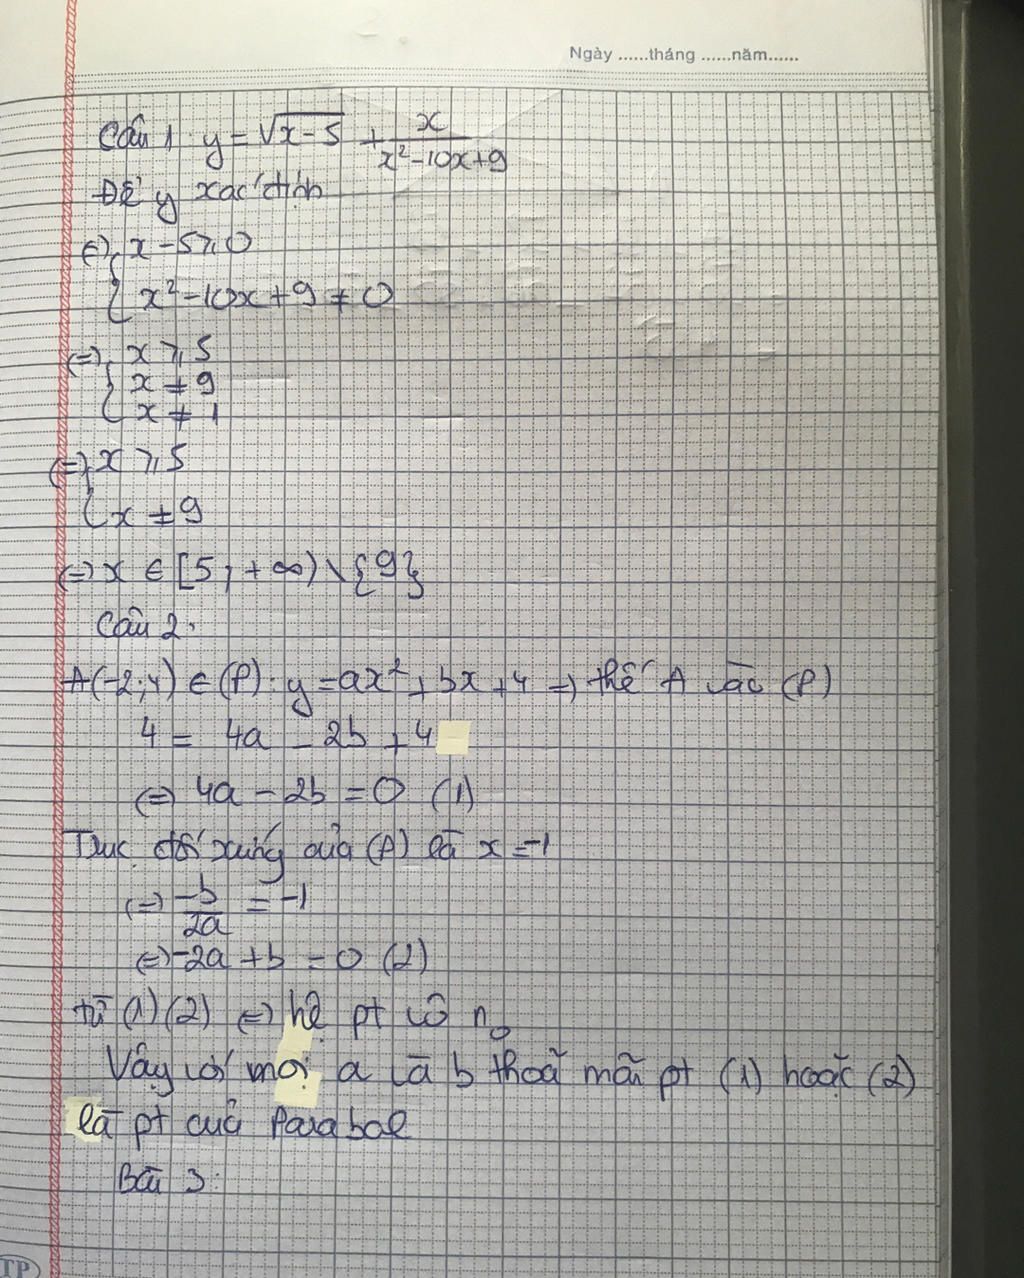 Ngày ......tháng ......năm......
Câu 1: y = √x-5 + x/x²-10x+9
Để y xác định
⇔ { x - 5 ⩾ 0
x² - 10x + 9 ≠ 0
⇔ { x ⩾ 5
x ≠ 9
x ≠ 1
⇔ { x ⩾ 5
x ≠ 9
⇔ x ∈ [5; +∞) \ {9}
Câu 2:
A(-2;4) ∈ (P): y = ax² + bx + 4 ⇒ thế A vào (P)
4 = 4a - 2b + 4
⇔ 4a - 2b = 0 (1)
Trục đối xứng của (P) là x = -1
⇔ -b/2a = -1
⇔ -2a + b = 0 (2)
từ (1) (2) ⇔ hệ pt vô n₀
Vậy với mọi a và b thoã mãn pt (1) hoặc (2)
là pt của Parabol
Bài 3:
TP